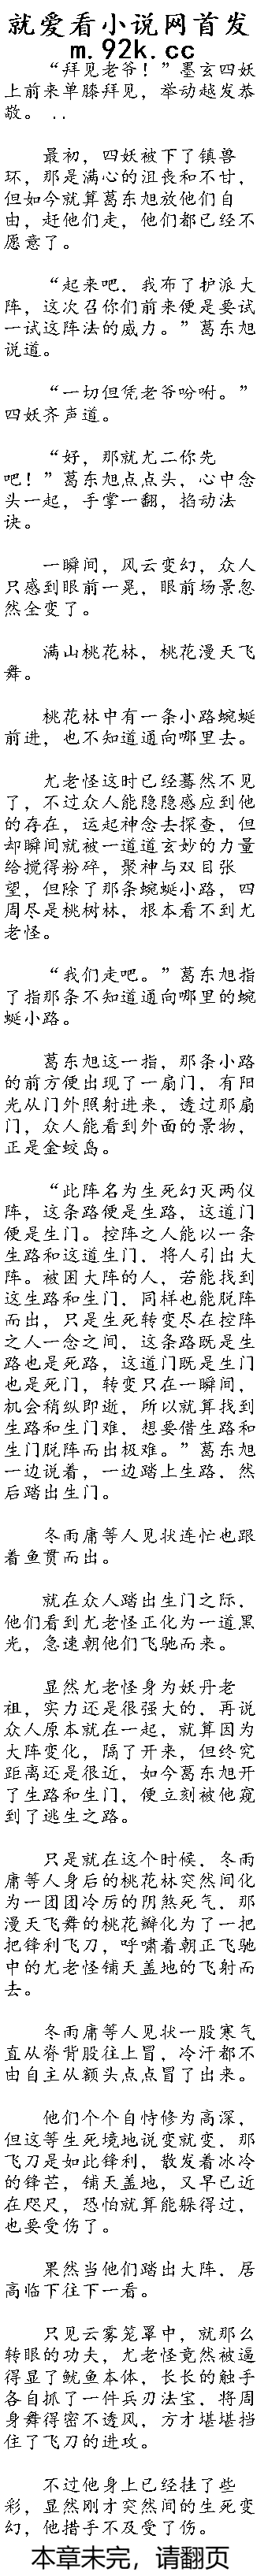 就爱看小说网首发
m.92k.cc
“拜见老爷！”墨玄四妖
上前来单膝拜见，举动越发恭
敬。 ..
最初，四妖被下了镇兽
环，那是满心的沮丧和不甘，
但如今就算葛东旭放他们自
由，赶他们走，他们都已经不
愿意了。
“起来吧，我布了护派大
阵，这次召你们前来便是要试
一试这阵法的威力。”葛东旭
说道。
“一切但凭老爷吩咐。”
四妖齐声道。
“好，那就尤二你先
吧！”葛东旭点点头，心中念
头一起，手掌一翻，掐动法
诀。
一瞬间，风云变幻，众人
只感到眼前一晃，眼前场景忽
然全变了。
满山桃花林，桃花漫天飞
舞。
桃花林中有一条小路蜿蜒
前进，也不知道通向哪里去。
尤老怪这时已经蓦然不见
了，不过众人能隐隐感应到他
的存在，运起神念去探查，但
却瞬间就被一道道玄妙的力量
给搅得粉碎，聚神与双目张
望，但除了那条蜿蜒小路，四
周尽是桃树林，根本看不到尤
老怪。
“我们走吧。”葛东旭指
了指那条不知道通向哪里的蜿
蜒小路。
葛东旭这一指，那条小路
的前方便出现了一扇门，有阳
光从门外照射进来，透过那扇
门，众人能看到外面的景物，
正是金蛟岛。
“此阵名为生死幻灭两仪
阵，这条路便是生路，这道门
便是生门。控阵之人能以一条
生路和这道生门，将人引出大
阵。被困大阵的人，若能找到
这生路和生门，同样也能脱阵
而出，只是生死转变尽在控阵
之人一念之间，这条路既是生
路也是死路，这道门既是生门
也是死门，转变只在一瞬间，
机会稍纵即逝，所以就算找到
生路和生门难，想要借生路和
生门脱阵而出极难。”葛东旭
一边说着，一边踏上生路，然
后踏出生门。
冬雨庸等人见状连忙也跟
着鱼贯而出。
就在众人踏出生门之际，
他们看到尤老怪正化为一道黑
光，急速朝他们飞驰而来。
显然尤老怪身为妖丹老
祖，实力还是很强大的，再说
众人原本就在一起，就算因为
大阵变化，隔了开来，但终究
距离还是很近，如今葛东旭开
了生路和生门，便立刻被他窥
到了逃生之路。
只是就在这个时候，冬雨
庸等人身后的桃花林突然间化
为一团团冷厉的阴煞死气，那
漫天飞舞的桃花瓣化为了一把
把锋利飞刀，呼啸着朝正飞驰
中的尤老怪铺天盖地的飞射而
去。
冬雨庸等人见状一股寒气
直从脊背股往上冒，冷汗都不
由自主从额头点点冒了出来。
他们个个自恃修为高深，
但这等生死境地说变就变，那
飞刀是如此锋利，散发着冰冷
的锋芒，铺天盖地，又早已近
在咫尺，恐怕就算能躲得过，
也要受伤了。
果然当他们踏出大阵，居
高临下往下一看。
只见云雾笼罩中，就那么
转眼的功夫，尤老怪竟然被逼
得显了鱿鱼本体，长长的触手
各自抓了一件兵刃法宝，将周
身舞得密不透风，方才堪堪挡
住了飞刀的进攻。
不过他身上已经挂了些
彩，显然刚才突然间的生死变
幻，他措手不及受了伤。
本章未完，请翻页